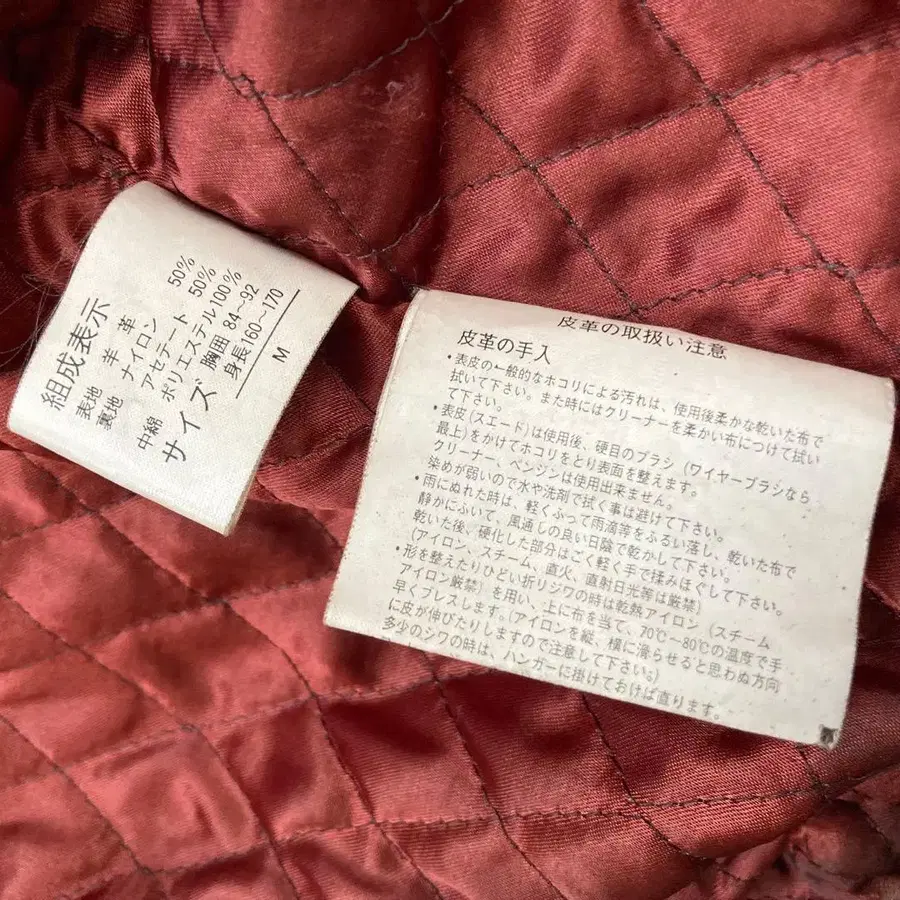 組成表示
表地 羊革
裏地 ナイロン 50%
アセテート 50%
中綿 ポリエステル100%
サイズ 胸囲 84〜92
身長 160〜170
M
皮革の取扱い注意
皮革の手入
・表皮の一般的なホコリによる汚れは、使用後柔かな乾いた布で
拭いて下さい。また時にはクリーナーを柔かい布につけて拭い
て下さい。
・表皮(スエード)は使用後、硬目のブラシ(ワイヤーブラシなら
最上)をかけてホコリをとり表面を整えます。
クリーナー、ベンジンは使用出来ません。
染めが弱いので水や洗剤で拭く事は避けて下さい。
・雨にぬれた時は、軽くふって雨滴等をふるい落し、乾いた布で
静かにふいて、風通しの良い日陰で乾かして下さい。
乾いた後、硬化した部分はごく軽く手で揉みほぐして下さい。
(アイロン、スチーム、直火、直射日光等は厳禁)
・形を整えたりひどい折りジワの時は乾熱アイロン(スチーム
アイロン厳禁)を用い、上に布を当て、70℃〜80℃の温度で手
早くプレスします。(アイロンを縦、横に滑らせると思わぬ方向
に皮が伸びたりしますので注意して下さい。)
多少のシワの時は、ハンガーに掛けておけば直ります。